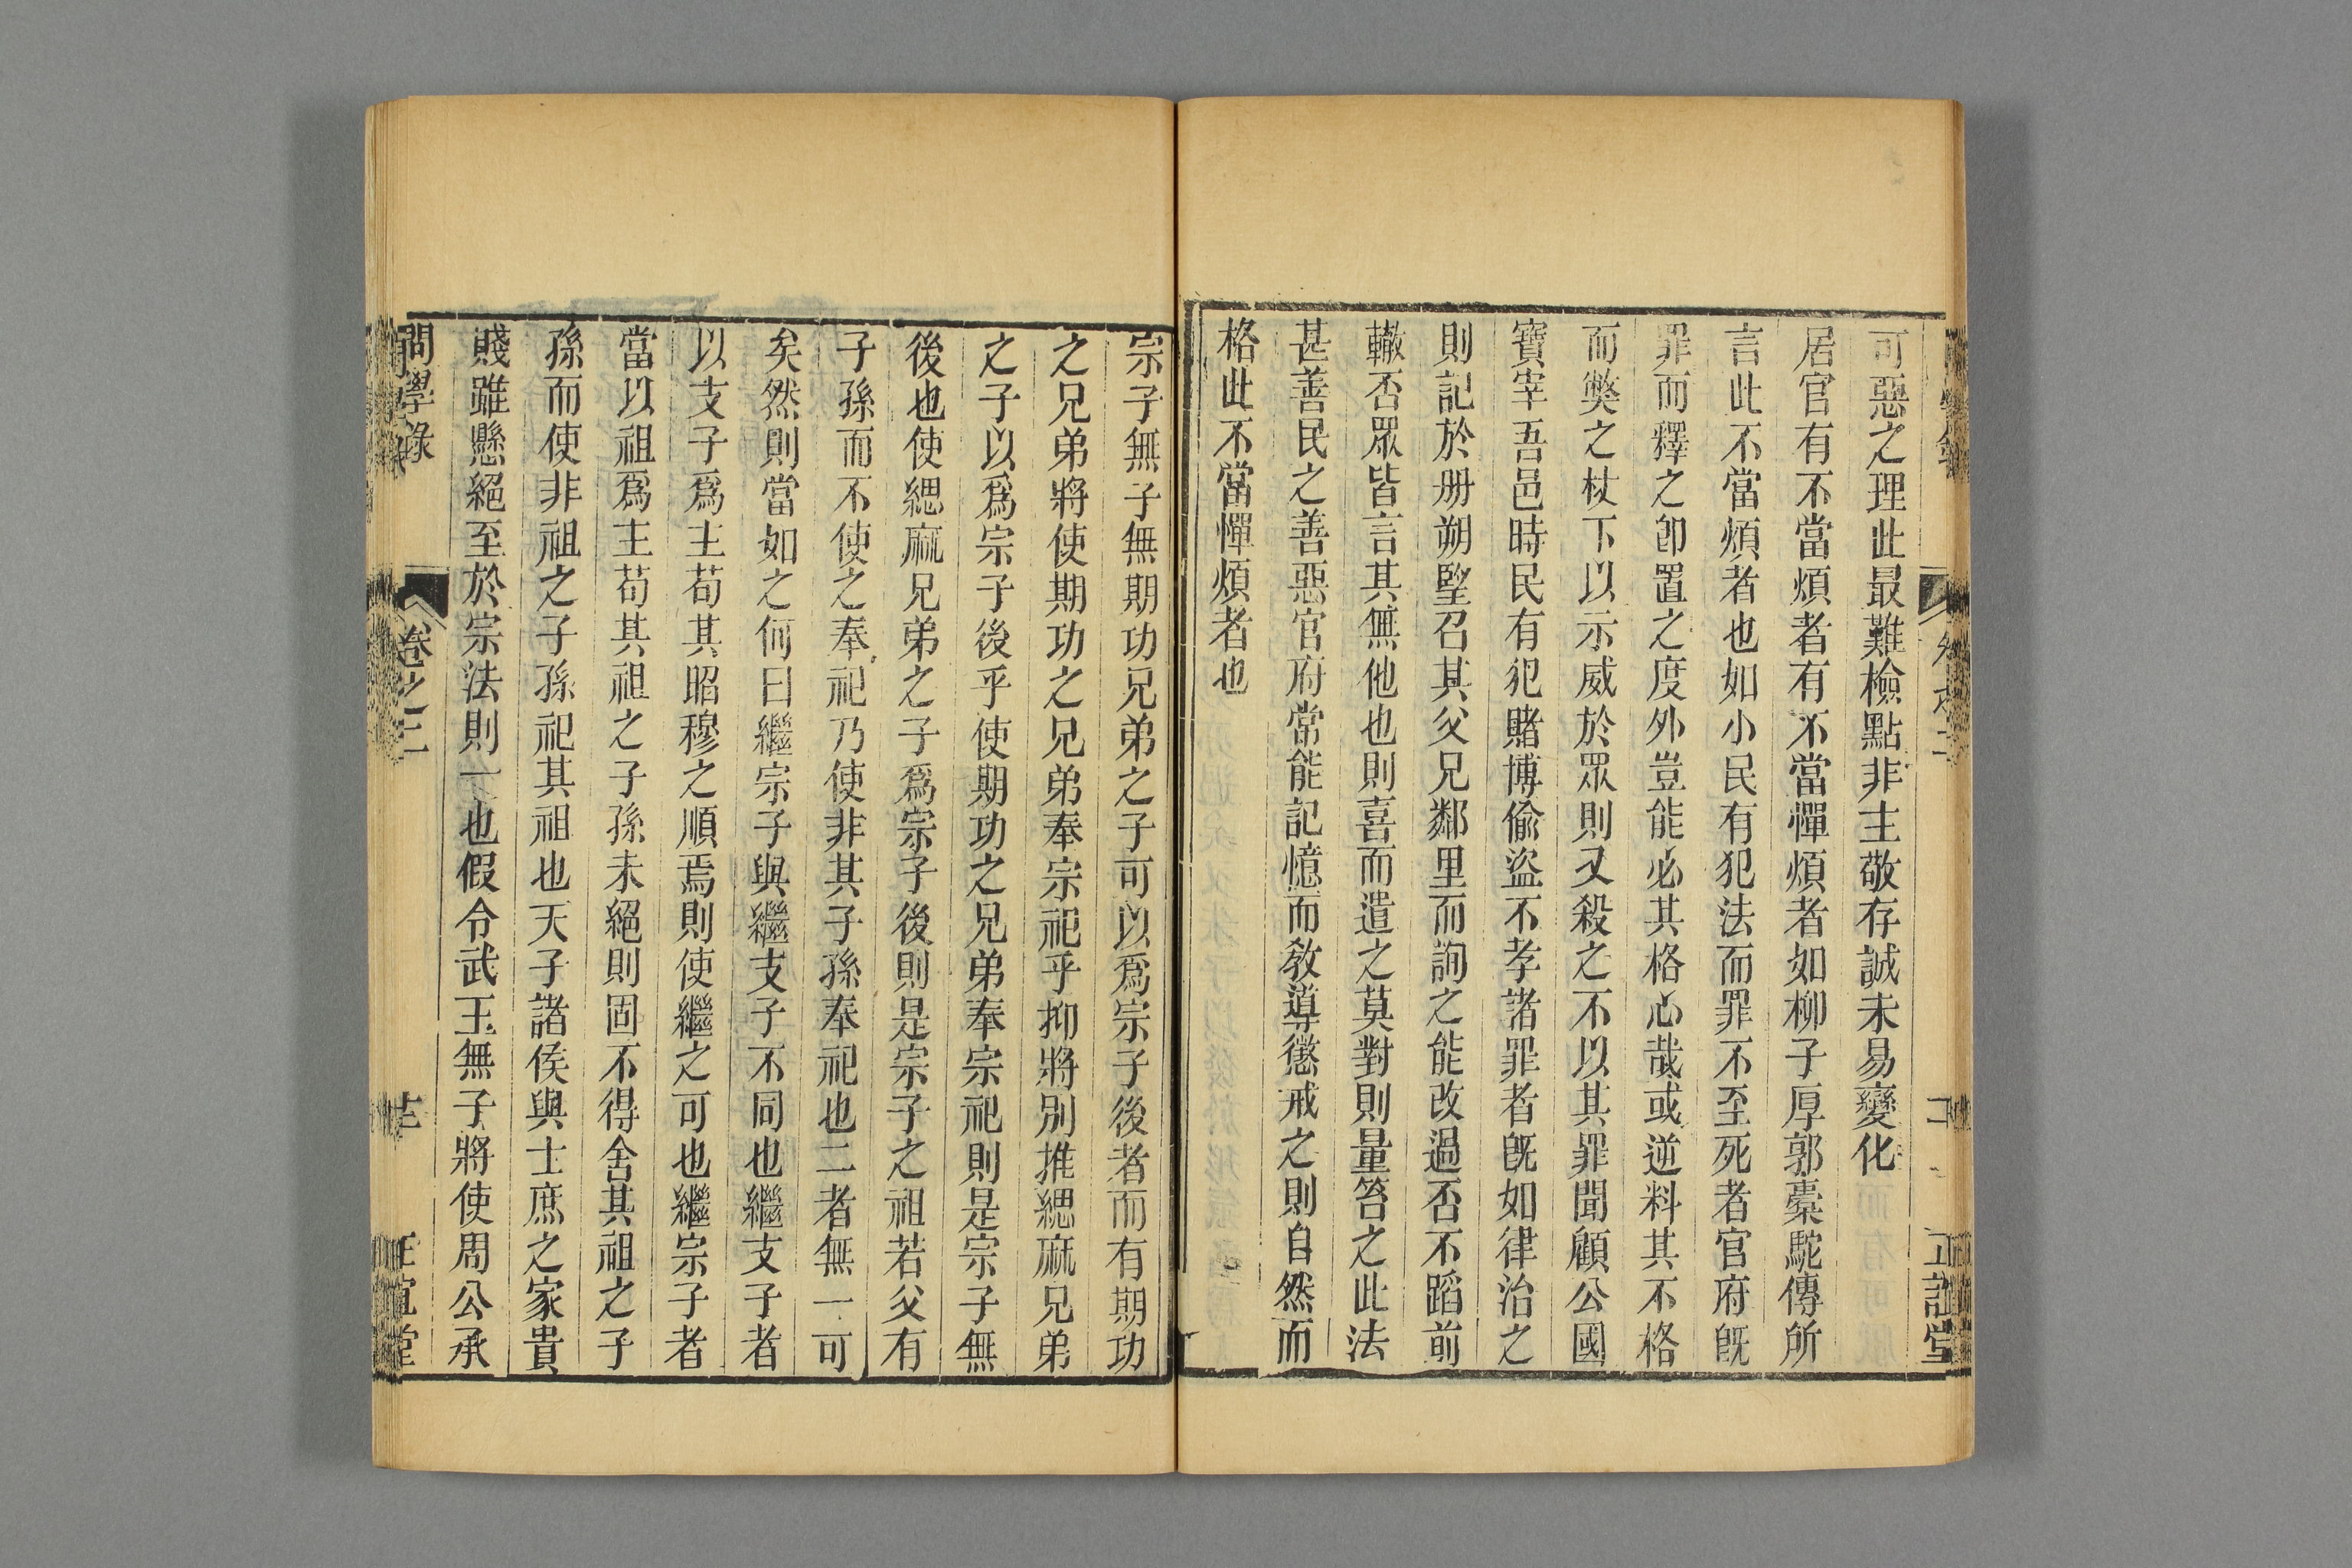 可惡之理此最難檢點非主敬存誠未易變化
居官有不當煩者有不當憚煩者如柳子厚郭橐駝傳所
言此不當煩者也如小民有犯法而罪不至死者官府旣
罪而釋之卽置之度外豈能必其格心哉或逆料其不格
而斃之杖下以示威於眾則又殺之不以其罪聞顧公國
寶宰吾邑時民有犯賭博偷盜不孝諸罪者旣如律治之
則記於册朔朢召其父兄鄰里而詢之能改過否不蹈前
轍否眾皆言其無他也則喜而遣之莫對則量笞之此法
甚善民之善惡官府常能記憶而敎導懲戒之則自然而
格此不當憚煩者也
宗子無子無期功兄弟之子可以爲宗子後者而有期功
之兄弟將使期功之兄弟奉宗祀乎抑將別推緦麻兄弟
之子以爲宗子後乎使期功之兄弟奉宗祀則是宗子無
後也使緦麻兄弟之子爲宗子後則是宗子之祖若父有
子孫而不使之奉祀乃使非其子孫奉祀也二者無一可
矣然則當如之何曰繼宗子與繼支子不同也繼支子者
以支子爲主苟其昭穆之順焉則使繼之可也繼宗子者
當以祖爲主苟其祖之子孫未絕則固不得舍其祖之子
孫而使非祖之子孫祀其祖也天子諸侯與士庶之家貴
賤雖懸絕至於宗法則一也假令武王無子將使周公承
問學錄
卷之三
正誼堂